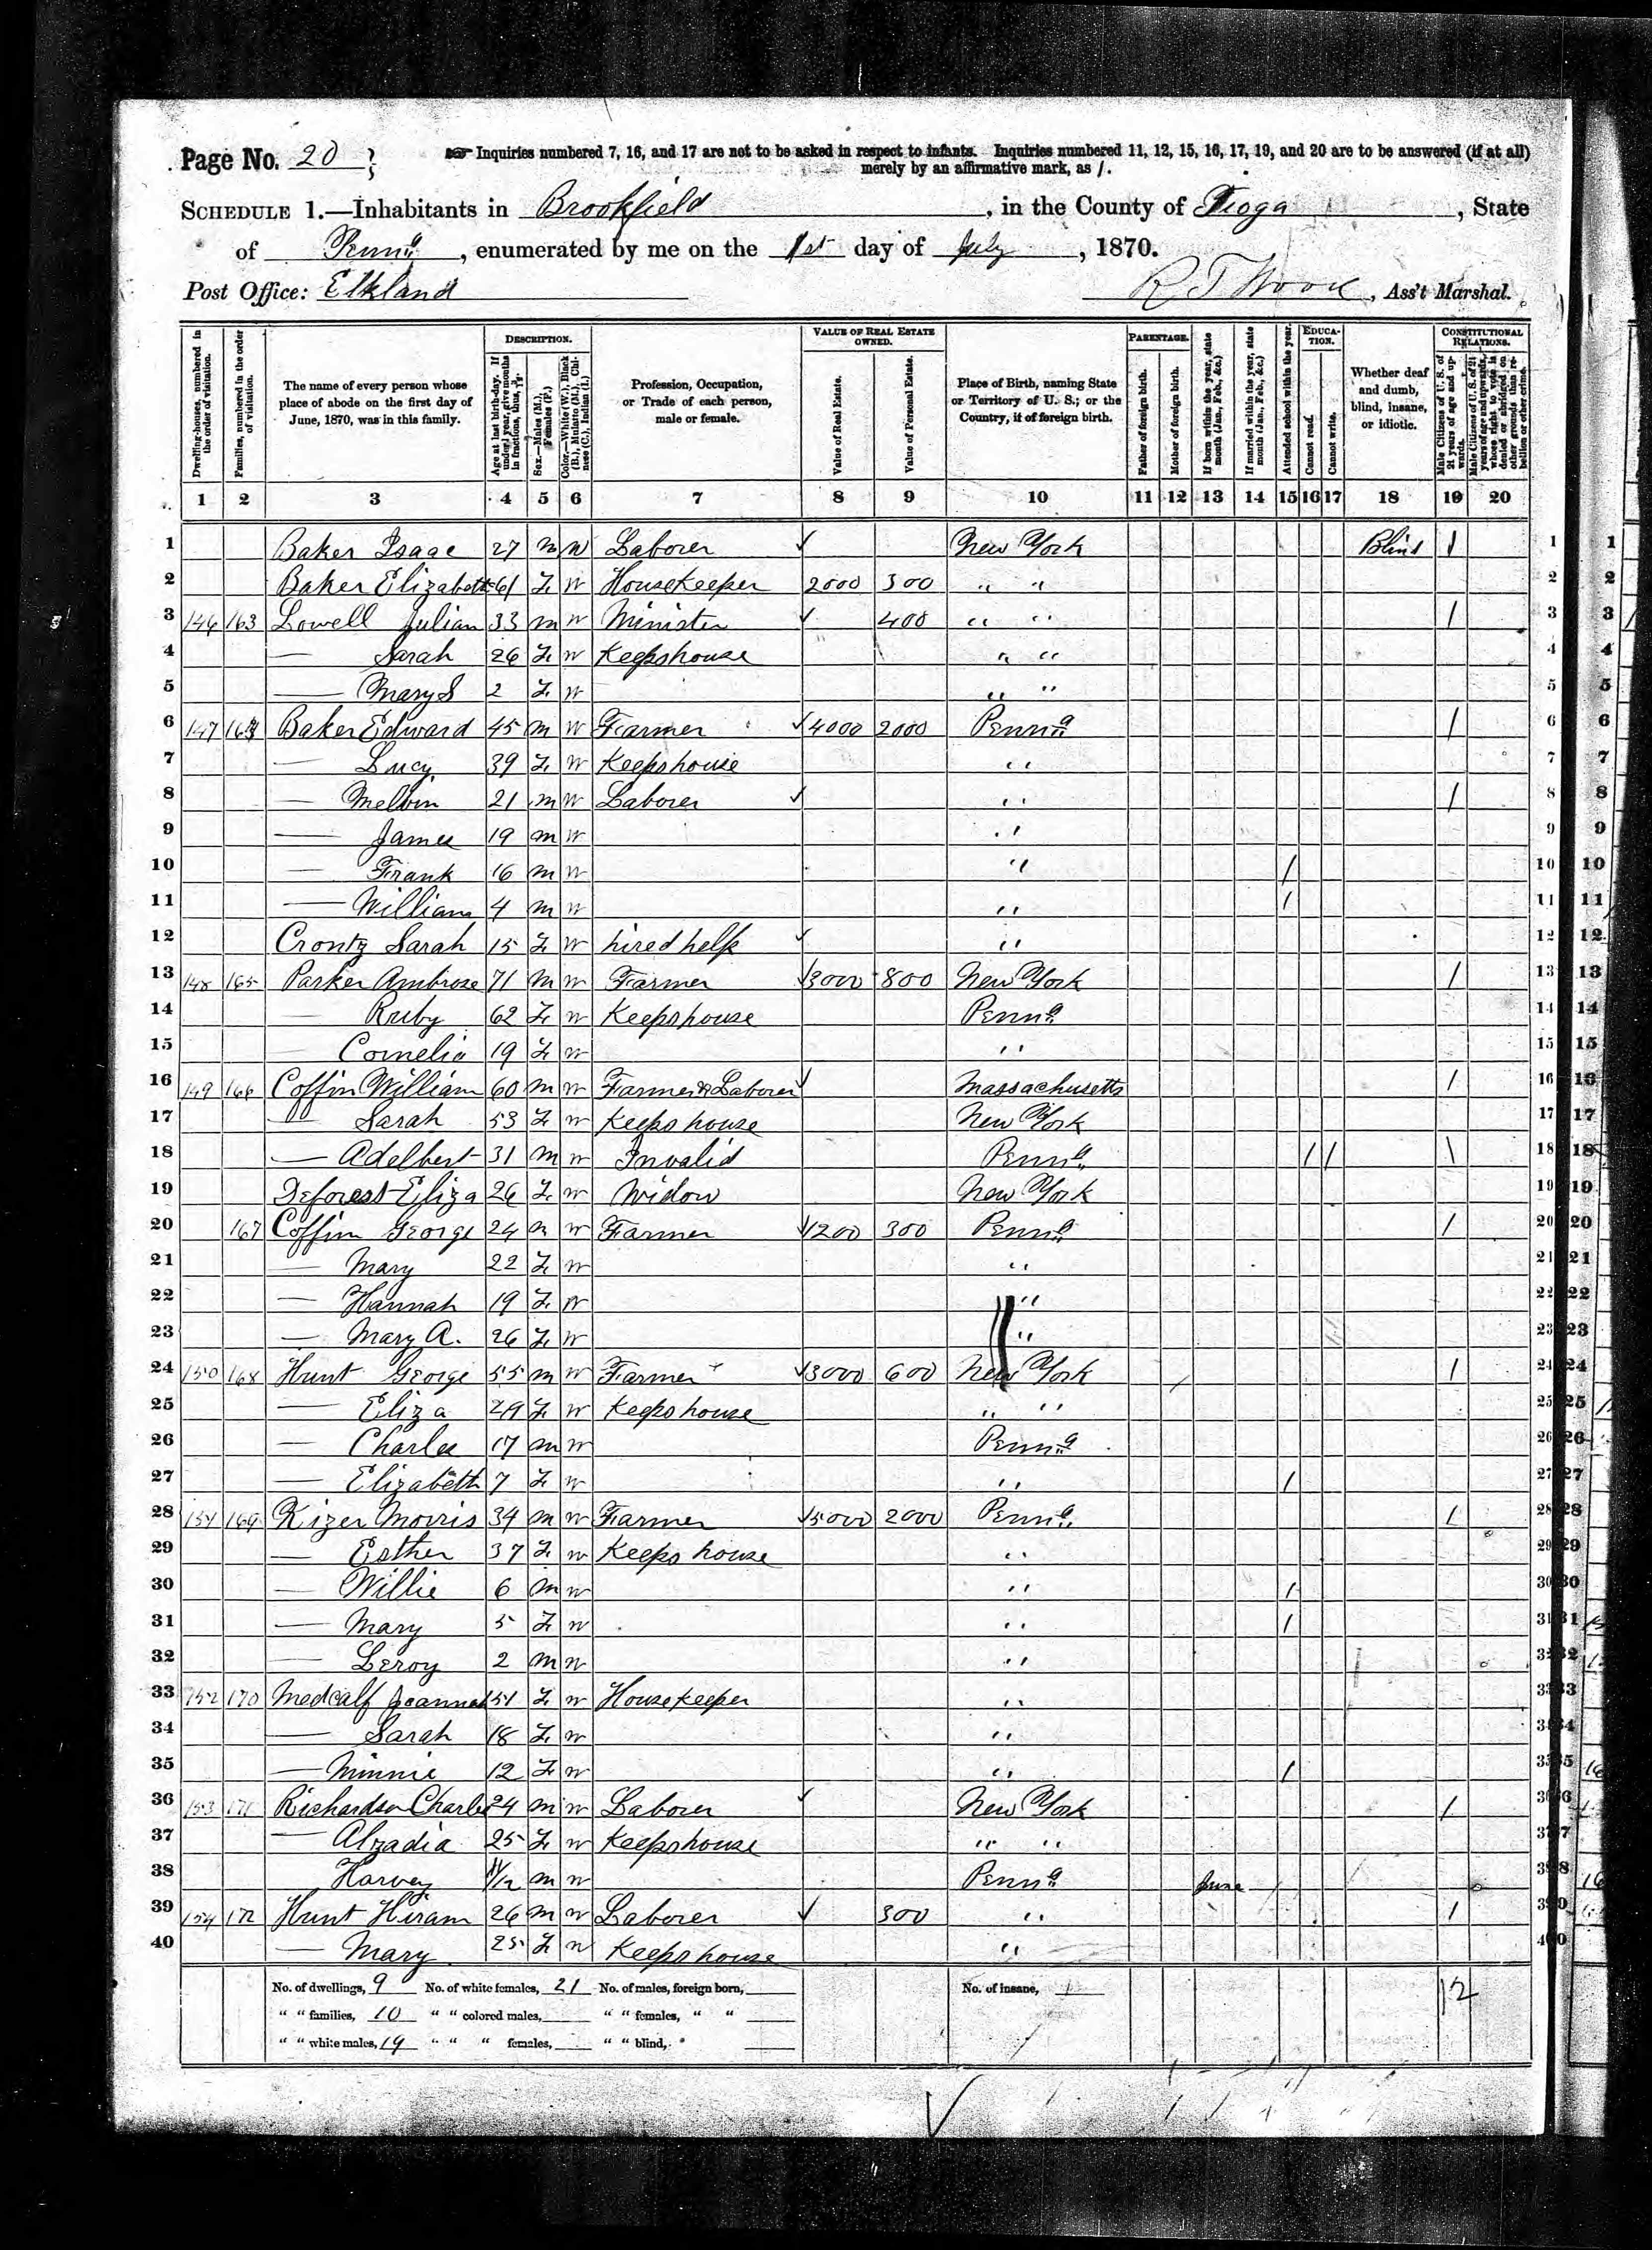 Page No. 20
Inquiries numbered 7, 16, and 17 are not to be asked in respect to infants. Inquiries numbered 11, 12, 15, 16, 17, 19, and 20 are to be answered (if at all)
merely by an affirmative mark, as /.
SCHEDULE 1.—Inhabitants in Brookfield, in the County of Tioga, State
of Penna, enumerated by me on the 1st day of July, 1870.
Post Office: Elkland
R T Wood, Ass't Marshal.
Dwelling-houses, numbered in the order of visitation.
Families, numbered in the order of visitation.
The name of every person whose place of abode on the first day of June, 1870, was in this family.
DESCRIPTION.
Age at last birth-day. If under 1 year, give months in fractions, thus, 3/12.
Sex.—Males (M.), Females (F.)
Color.—White (W.), Black (B.), Mulatto (M.), Chinese (C.), Indian (I.)
Profession, Occupation, or Trade of each person, male or female.
VALUE OF REAL ESTATE OWNED.
Value of Real Estate.
Value of Personal Estate.
Place of Birth, naming State or Territory of U. S.; or the Country, if of foreign birth.
PARENTAGE.
Father of foreign birth.
Mother of foreign birth.
If born within the year, state month (Jan., Feb., &c.)
If married within the year, state month (Jan., Feb., &c.)
Attended school within the year.
EDUCATION.
Cannot read.
Cannot write.
Whether deaf and dumb, blind, insane, or idiotic.
CONSTITUTIONAL RELATIONS.
Male Citizens of U. S. of 21 years of age and upwards.
Male Citizens of U. S. of 21 years of age and upwards, whose right to vote is denied or abridged on other grounds than rebellion or other crime.
1 2 3 4 5 6 7 8 9 10 11 12 13 14 15 16 17 18 19 20
1 Baker Isaac 27 m W Laborer ✓ New York Blind / 1
2 Baker Elizabeth 61 F W Housekeeper 2000 300 " " 2
3 146 163 Lowell Julian 33 m W Minister ✓ 400 " " / 3
4 — Sarah 26 F W Keeps house " " 4
5 — Mary S 2 F W " " 5
6 147 164 Baker Edward 45 m W Farmer ✓ 4000 2000 Penna / 6
7 — Lucy 39 F W Keeps house " 7
8 — Melvin 21 m W Laborer ✓ " / 8
9 — James 19 m W " 9
10 — Frank 16 m W " / 10
11 — William 4 m W " / 11
12 Crontz Sarah 15 F W hired help ✓ " 12
13 148 165 Parker Ambrose 71 m W Farmer ✓ 3000 800 New York / 13
14 — Ruby 62 F W Keeps house Penna 14
15 — Cornelia 19 F W " 15
16 149 166 Coffin William 60 m W Farmer & Laborer ✓ Massachusetts / 16
17 — Sarah 53 F W Keeps house New York 17
18 — Adelbert 31 m W Invalid Penna / / \ 18
19 Deforest Eliza 26 F W Widow New York 19
20 167 Coffin George 24 m W Farmer ✓ 1200 300 Penna / 20
21 — Mary 22 F W " 21
22 — Hannah 19 F W " 22
23 — Mary A. 26 F W " 23
24 150 168 Hunt George 55 m W Farmer ✓ 3000 600 New York / 24
25 — Eliza 49 F W Keeps house " " 25
26 — Charles 17 m W Penna 26
27 — Elizabeth 7 F W " / 27
28 151 169 Kizer Morris 34 m W Farmer ✓ 5000 2000 Penna / 28
29 — Esther 37 F W Keeps house " 29
30 — Willie 6 m W " / 30
31 — Mary 5 F W " / 31
32 — Leroy 2 m W " 32
33 152 170 Medcalf Joannah 51 F W Housekeeper " 33
34 — Sarah 18 F W " 34
35 — Minnie 12 F W " / 35
36 153 171 Richardson Charles 24 m W Laborer ✓ New York / 36
37 — Alzadia 25 F W Keeps house " " 37
38 Harvey 11/12 m W Penna June 38
39 154 172 Hunt Hiram 26 m W Laborer ✓ 300 " / 39
40 — Mary 25 F W Keeps house " 40
No. of dwellings, 9 No. of white females, 21 No. of males, foreign born, No. of insane, 12
" " families, 10 " " colored males, " " females, " "
" " white males, 19 " " " females, " " blind,